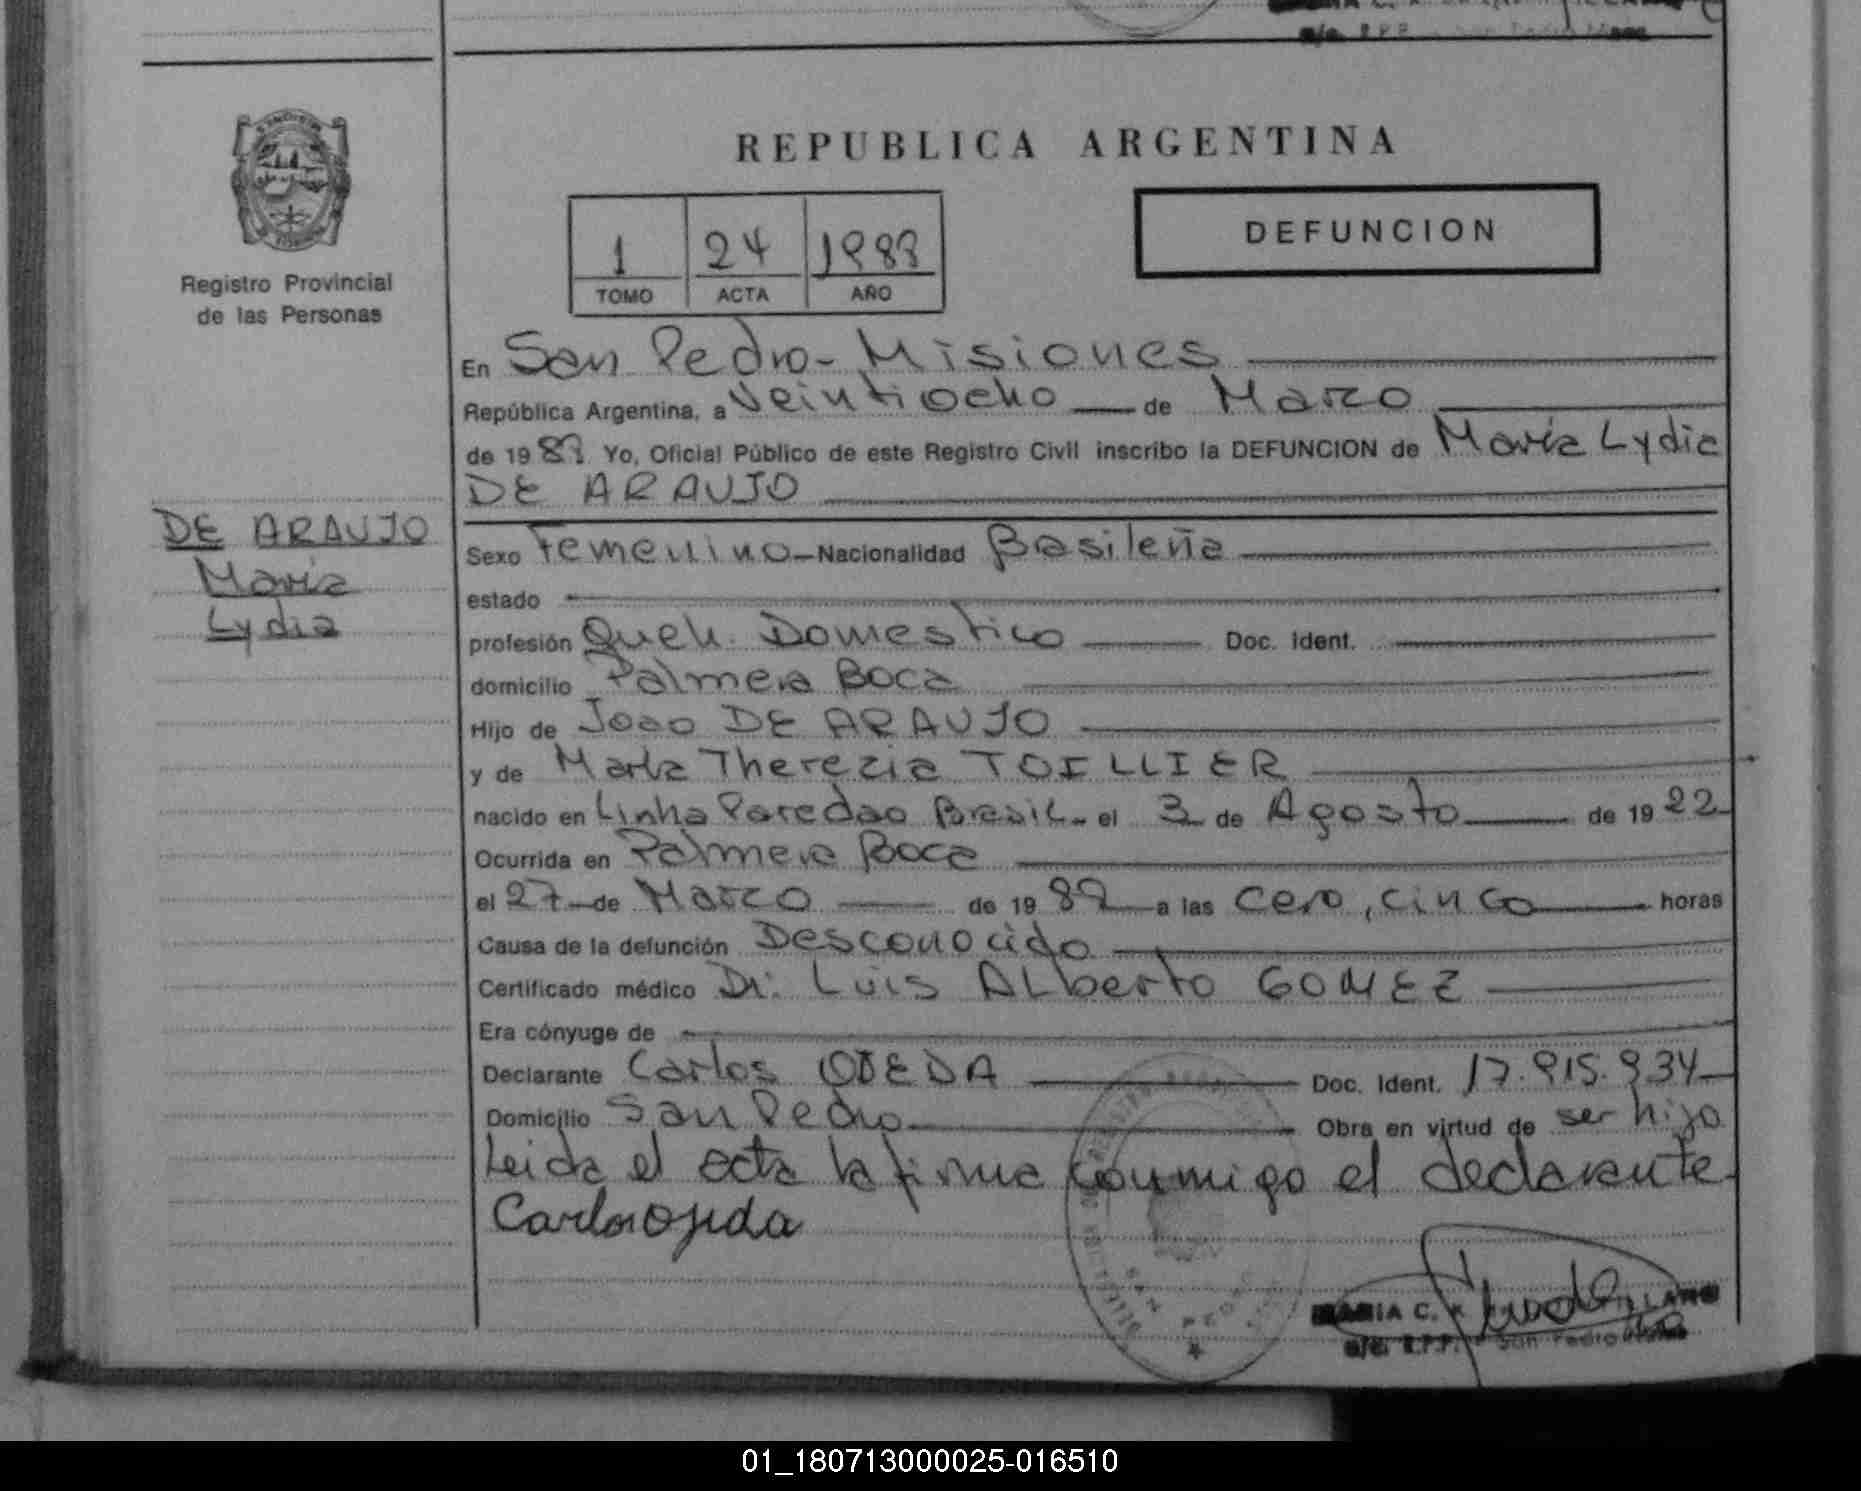 REPUBLICA ARGENTINA
DEFUNCION
1 24 1989
TOMO ACTA AÑO
Registro Provincial
de las Personas
En San Pedro - Misiones
República Argentina, a Veintiocho de Marzo
de 1989 Yo, Oficial Público de este Registro Civil inscribo la DEFUNCION de María Lydia
DE ARAUJO
DE ARAUJO
María
Lydia
Sexo Femenino - Nacionalidad Brasileña
estado
profesión Queh. Domestico Doc. Ident.
domicilio Palmera Boca
Hijo de Joao DE ARAUJO
y de María Therezia TOILLIER
nacido en Linha Paredao Brasil - el 3 de Agosto de 1922
Ocurrida en Palmera Boca
el 27 de Marzo de 1989 a las cero, cinco horas
Causa de la defunción Desconocido
Certificado médico Dr. Luis Alberto GOMEZ
Era cónyuge de
Declarante Carlos OJEDA Doc. Ident. 17.915.934
Domicilio San Pedro Obra en virtud de ser hijo
Leida el acta la firma conmigo el declarante
Carlos Ojeda
MARIA C.
R.P.P. San Pedro
01_180713000025-016510